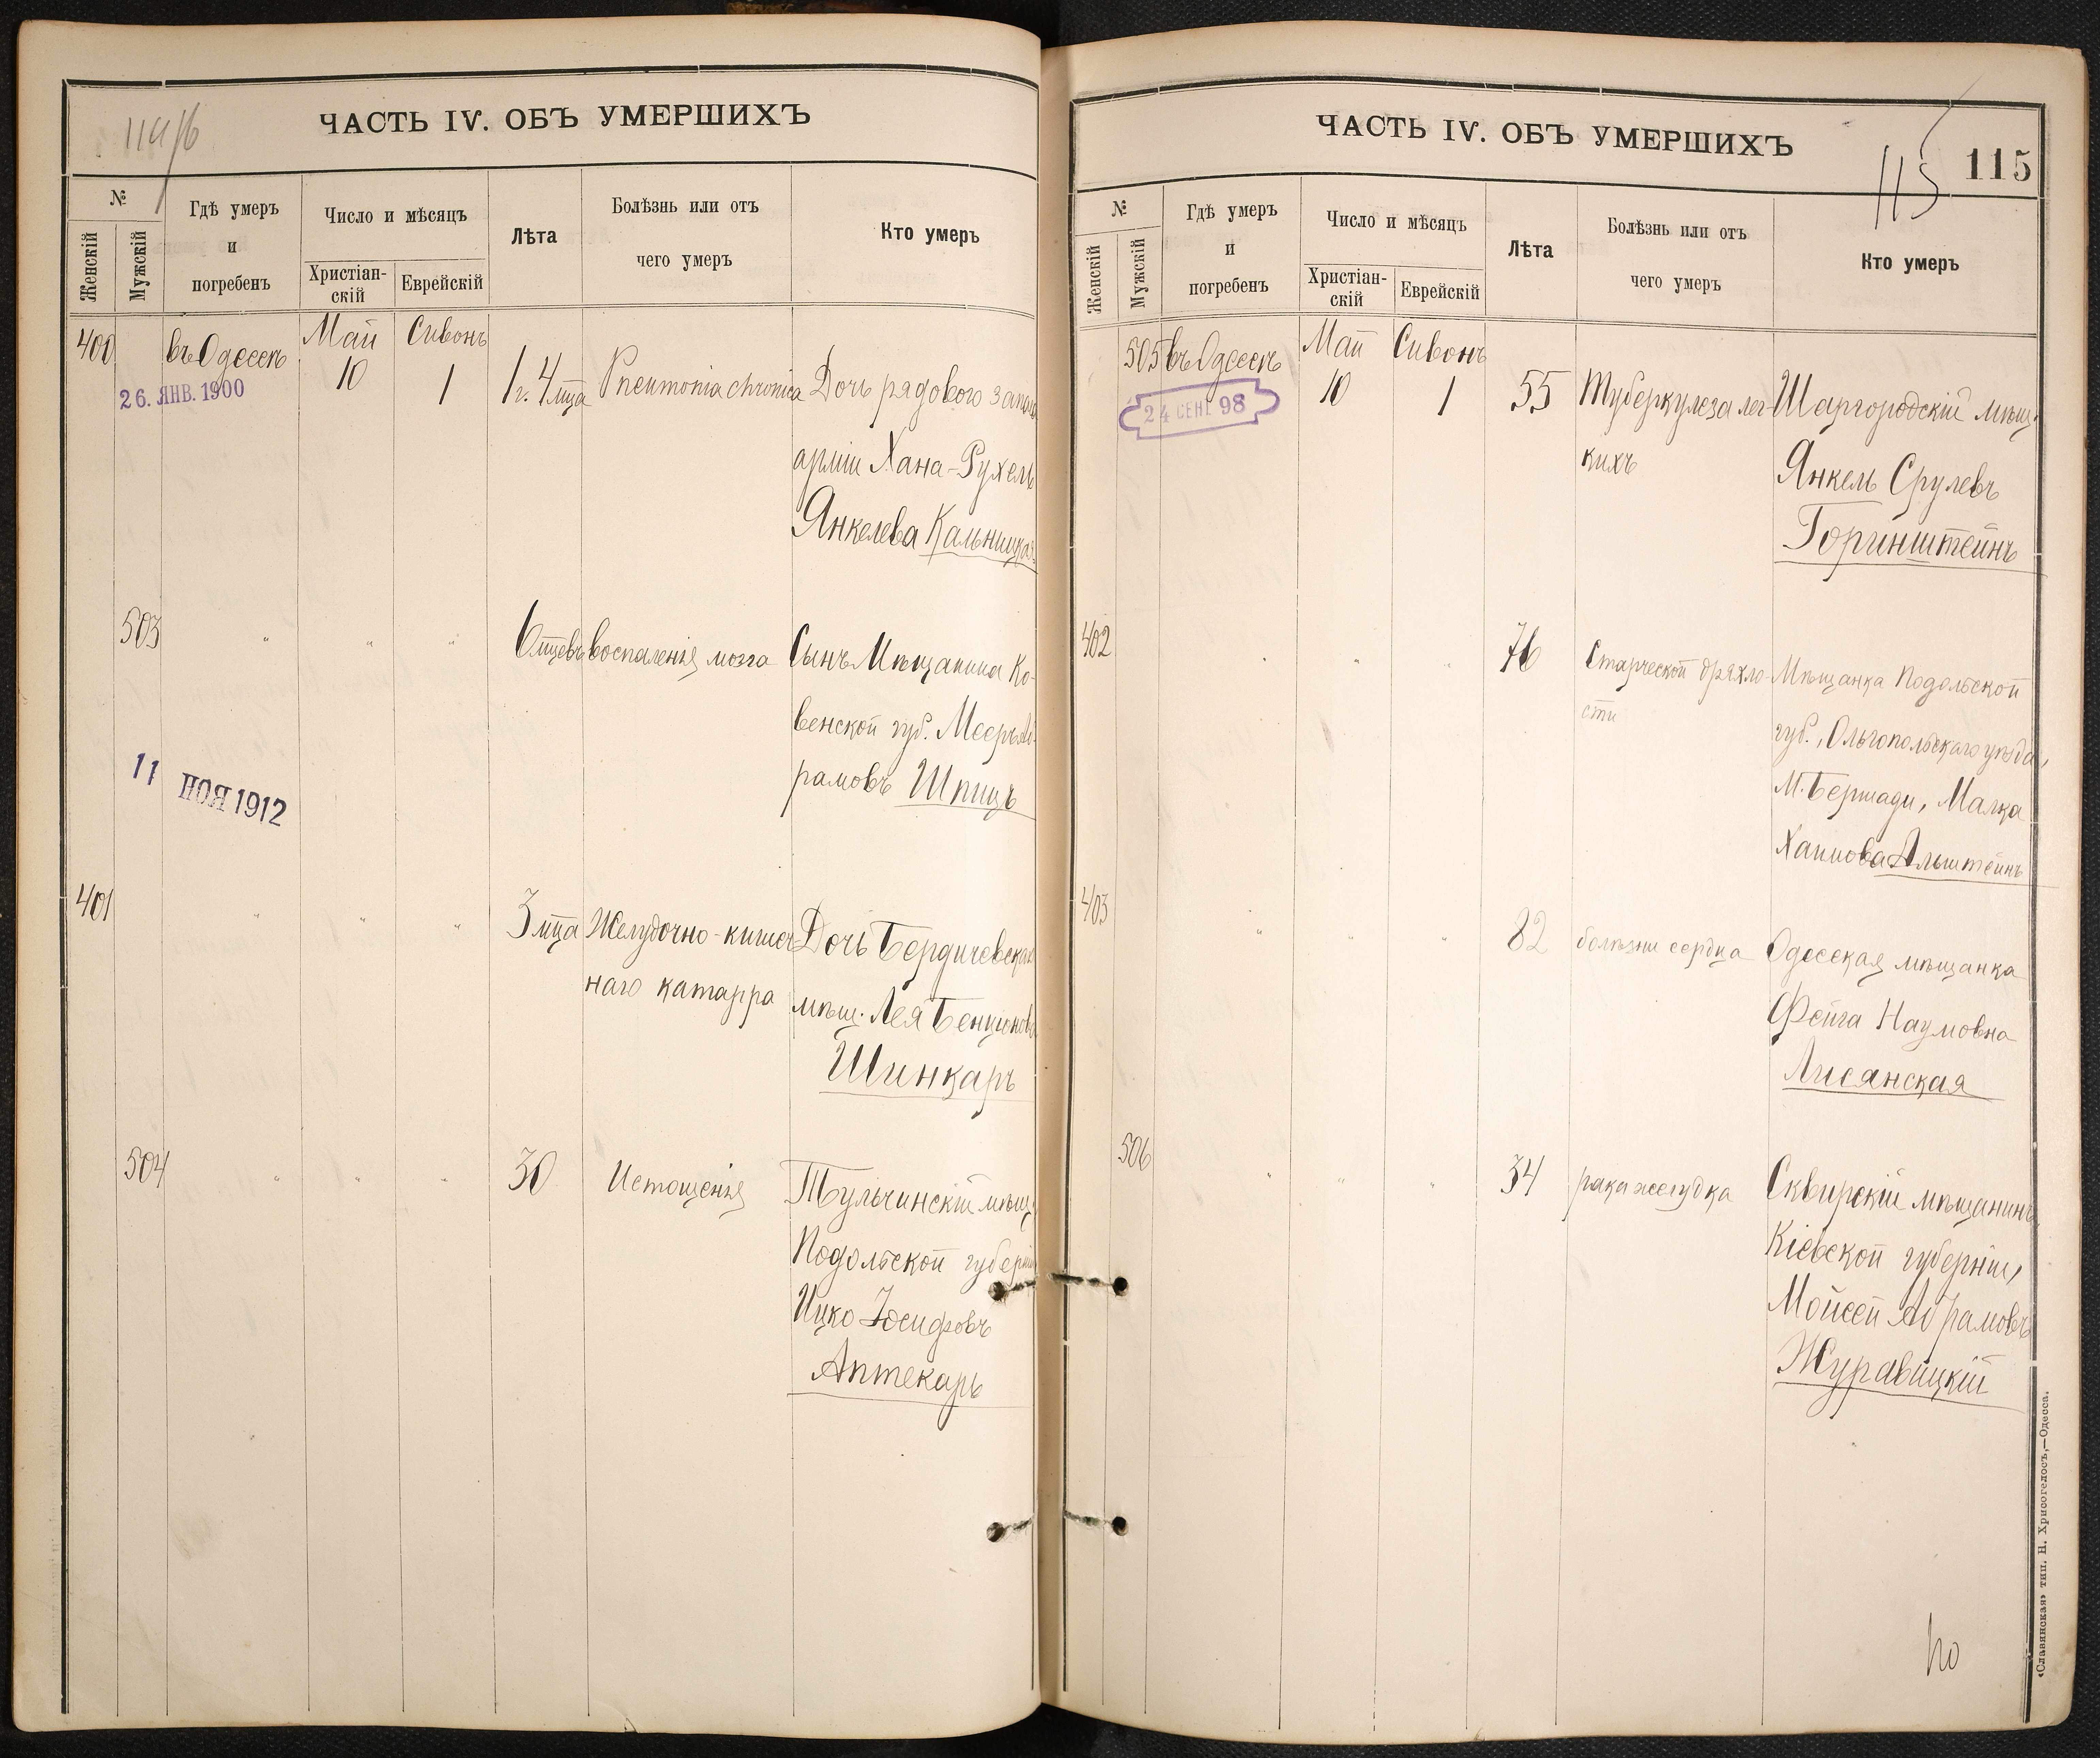 114/б
ЧАСТЬ IV. ОБЪ УМЕРШИХЪ
№
Женскій
Мужскій
Гдѣ умеръ
и
погребенъ
Число и мѣсяцъ
Христіан-
скій
Еврейскій
Лѣта
Болѣзнь или отъ
чего умеръ
Кто умеръ
400 въ Одессѣ Май 10 Сивонъ 1 1 г. 4 мца Pneumonia chronica Дочь рядового запаса
26. ЯНВ. 1900
арміи Хана-Рухель
Янкелева Кальницкая
503 " " " 6 мцевъ воспаленія мозга Сынъ Мѣщанина Ко-
венской губ. Мееръ Аб-
рамовъ Шпицъ
11 НОЯ 1912
401 " " " 3 мца Желудочно-кишеч Дочь Бердичевская
наго катарра мѣщ. Лея Бенціонова
Шинкаръ
504 " " " 30 Истощенія Тульчинскій мѣщ.
Подольской губерніи
Ицко Іосифовъ
Аптекарь
ЧАСТЬ IV. ОБЪ УМЕРШИХЪ
115
115
№
Женскій
Мужскій
Гдѣ умеръ
и
погребенъ
Число и мѣсяцъ
Христіан-
скій
Еврейскій
Лѣта
Болѣзнь или отъ
чего умеръ
Кто умеръ
505 въ Одессѣ Май 10 Сивонъ 1 55 Туберкулеза лег- Шаргородскій мѣщ.
24 СЕНТ 98
кихъ Янкель Срулевъ
Горинштейнъ
402 " " " 76 Старческой дряхло- Мѣщанка Подольской
сти губ., Ольгопольскаго уѣзда,
М. Бершади, Малка
Хаимова Альштейнъ
403 " " " 82 болѣзни сердца Одесская мѣщанка
Фейга Наумовна
Лисянская
506 " " " 34 рака желудка Сквирскій мѣщанинъ
Кіевской губерніи,
Мойсей Абрамовъ
Журавицкій
по
«Славянская» тип. Н. Хрисогелосъ,—Одесса.